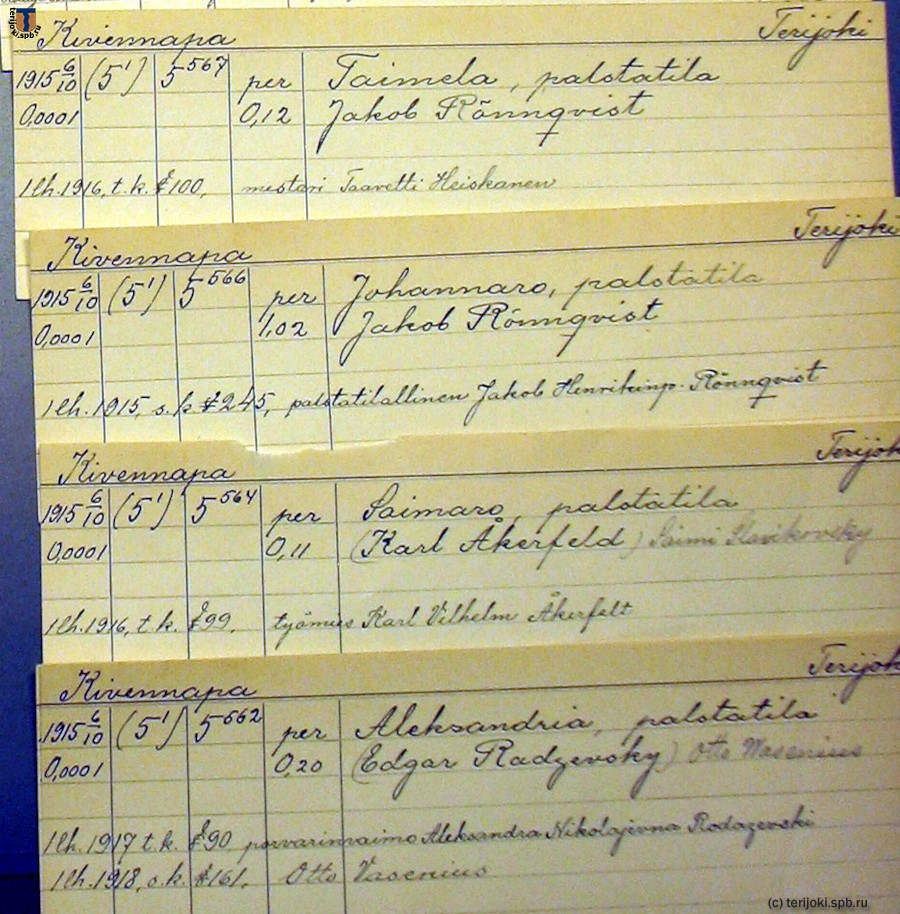 terijoki.spb.ru
Kivennapa Terijoki
1915 6/10 (5¹) 5⁵⁶⁷ per Taimela, palstatila
0,0001 0,12 Jakob Rönnqvist
1 lh. 1916, t. k. § 100, mestari Taavetti Heiskanen
Kivennapa Terijoki
1915 6/10 (5¹) 5⁵⁶⁶ per Johannaro, palstatila
0,0001 1,02 Jakob Rönnqvist
1 lh. 1915, s. k. § 245, palstatilallinen Jakob Henrikinp. Rönnqvist
Kivennapa Terijok
1915 6/10 (5¹) 5⁵⁶⁴ per Saimaro, palstatila
0,0001 0,11 (Karl Åkerfeld) Saimi Slavikovsky
1 lh. 1916, t. k. § 99, työmies Karl Vilhelm Åkerfelt
Kivennapa Terijok
1915 6/10 (5¹) 5⁵⁶² per Aleksandria, palstatila
0,0001 0,20 (Edgar Radzevsky) Otto Wasenius
1 lh. 1917 t. k. § 90 porvarinvaimo Aleksandra Nikolajevna Rodazevski
1 lh. 1918, s. k. § 161, Otto Vasenius
(c) terijoki.spb.ru